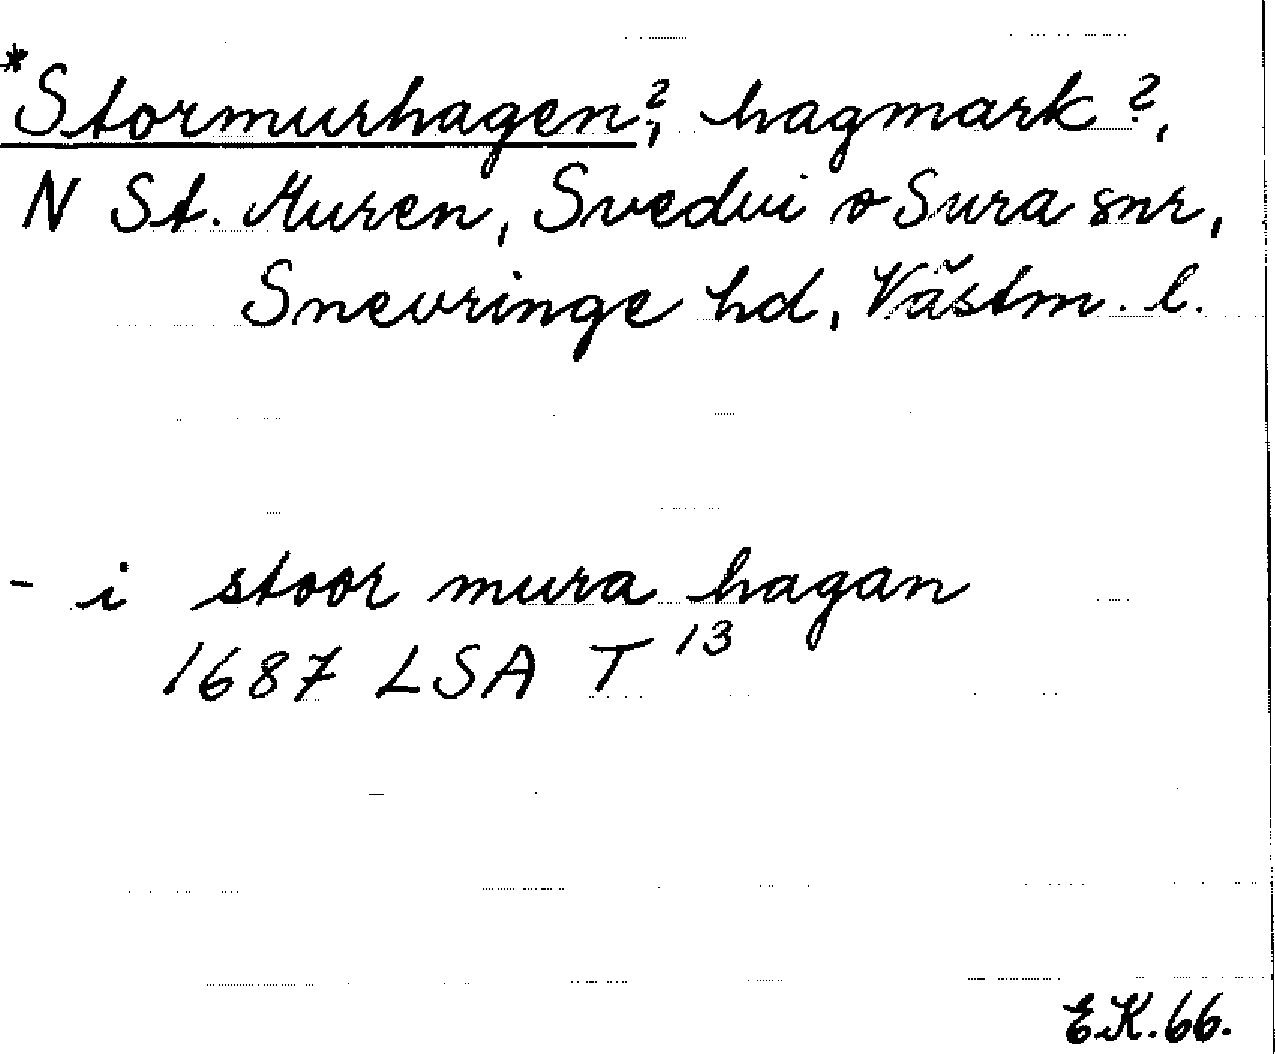 *Stormurhagen?, hagmark?,
N St. Muren, Svedvi o Sura snr,
Snevringe hd, Västm. l.
- i stoor mura hagan
1687 LSA T 13
E.K. 66.